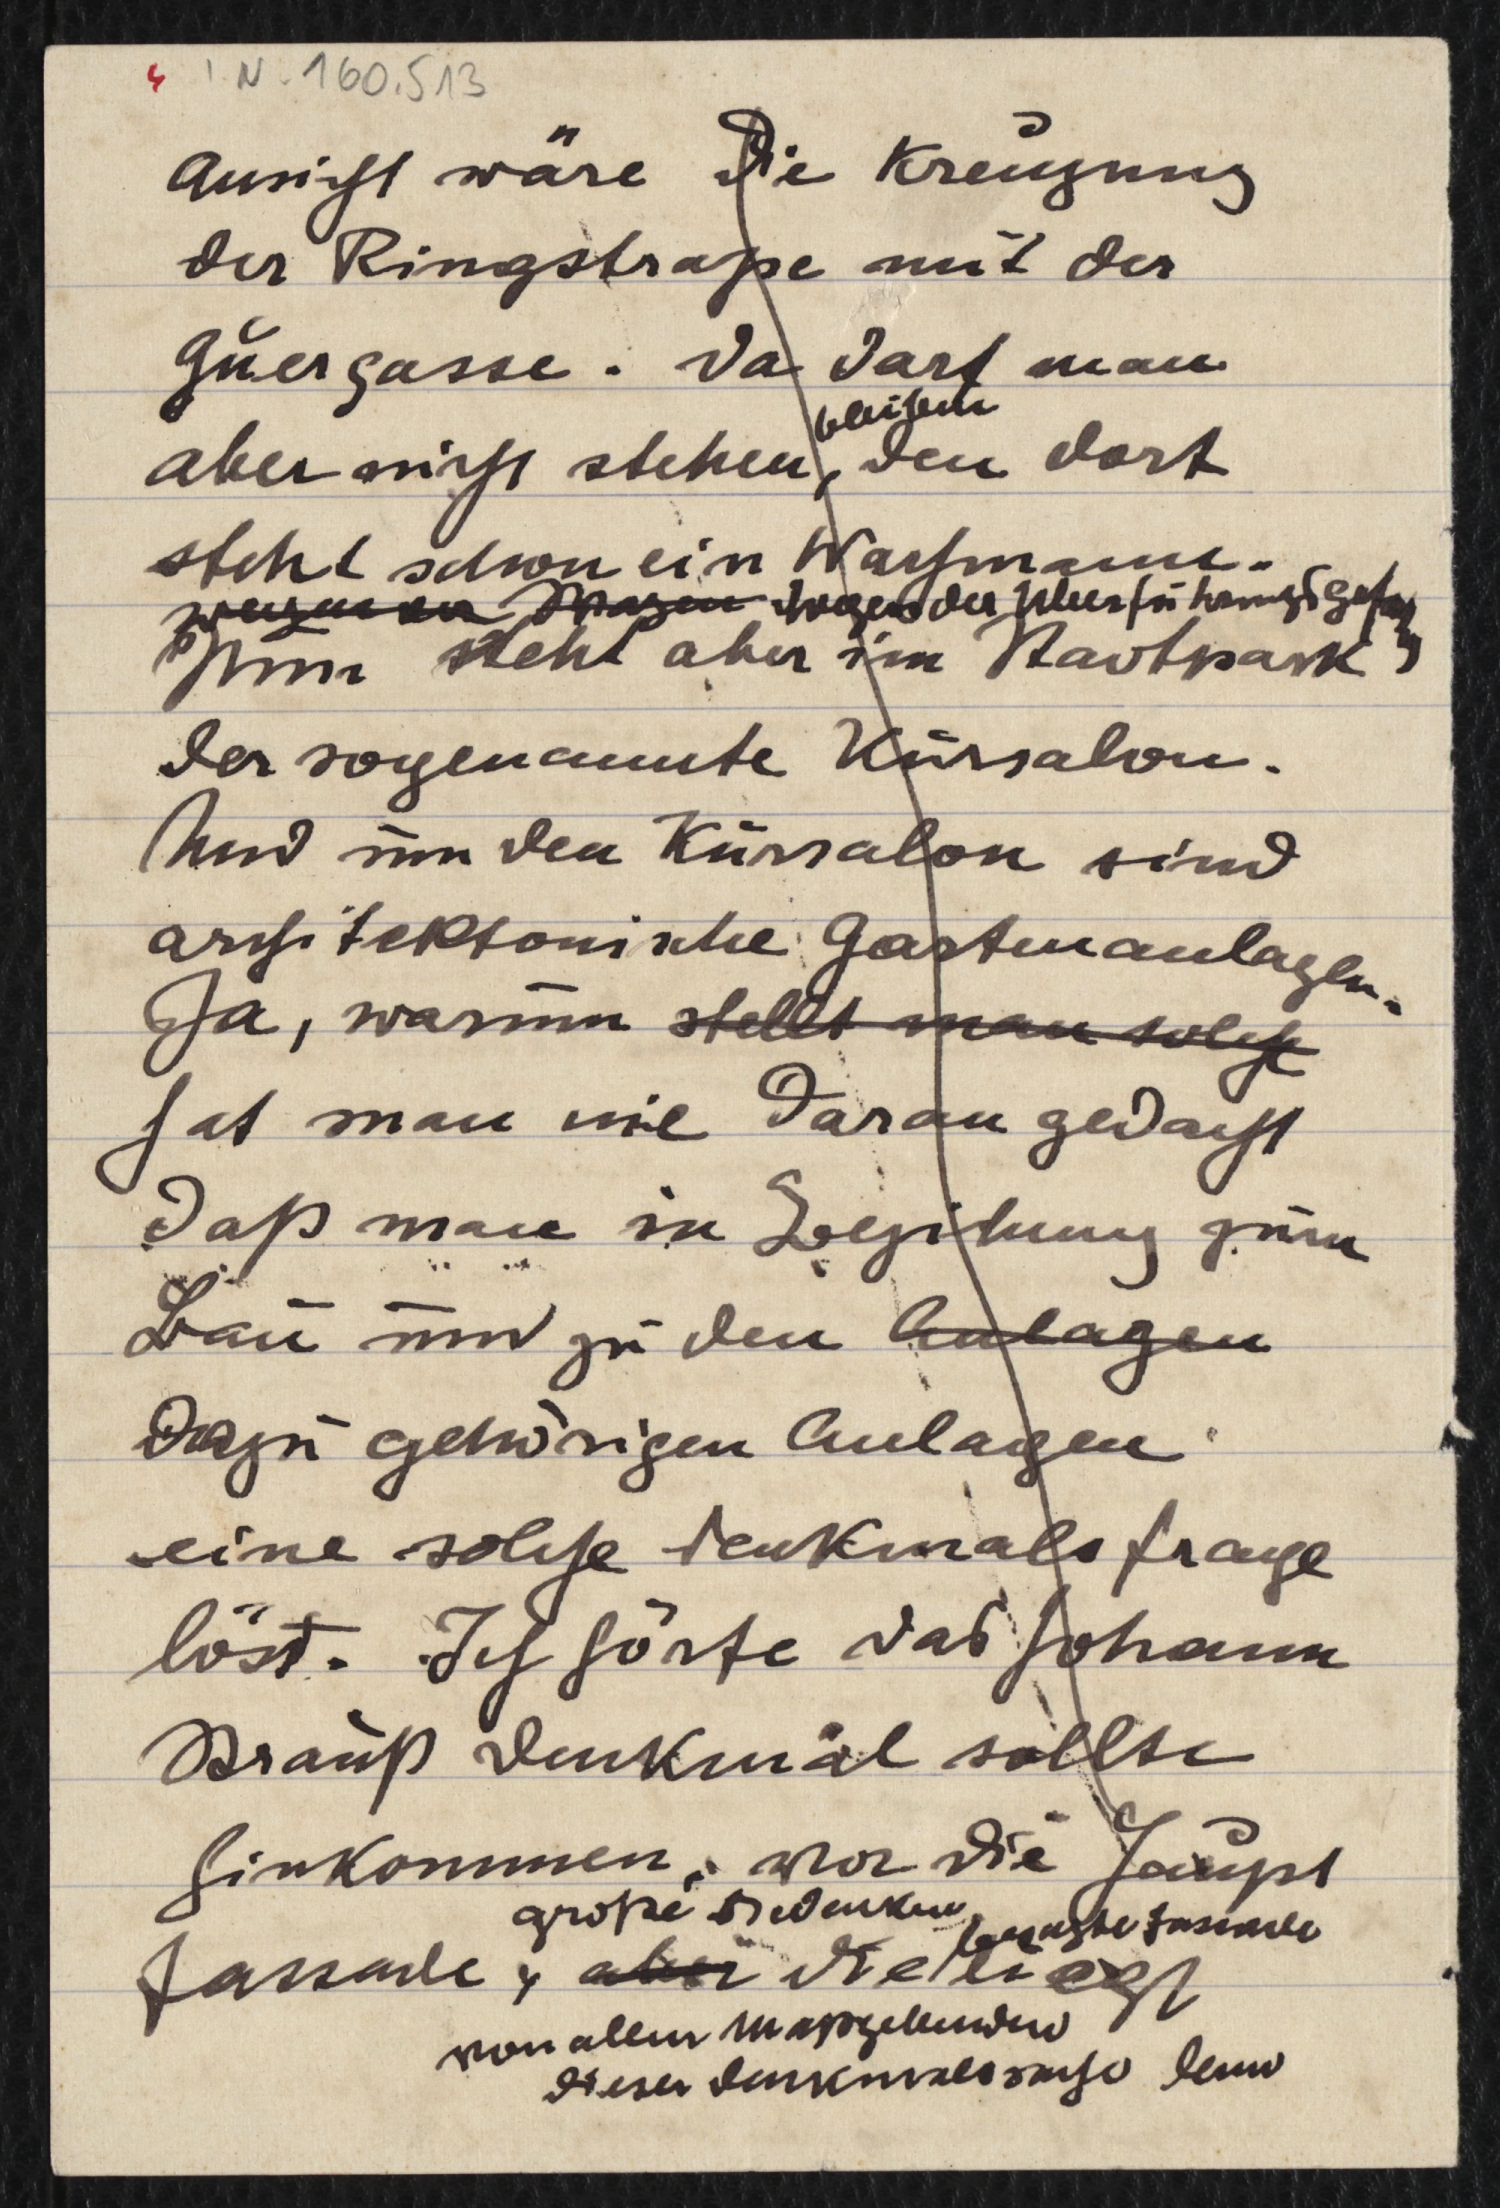 4 I.N. 160.513
Ansicht wäre die Kreuzung
der Ringstraße mit der
Quergasse. Da darf man
bleiben
aber nicht stehen, den dort
steht schon ein Wachmann.
wegen der Wagen wegen der Ueberführungsgefahr
Nun steht aber im Stadtpark
der sogenannte Kursalon.
Und um den Kursalon sind
architektonische Gartenanlagen.
Ja, warum stellt man solche
hat man nie daran gedacht
daß man in Beziehung zum
Bau und zu den Anlagen
dazu gehörigen Anlagen
eine solche Denkmalsfrage
löst. Ich hörte das Johann
Strauß Denkmal sollte
hinkommen, vor die Haupt
große Bedenken, besagte Fassade
fassade, aber die liegt
von allen Maßgebenden
dieser Denkmalssache denn